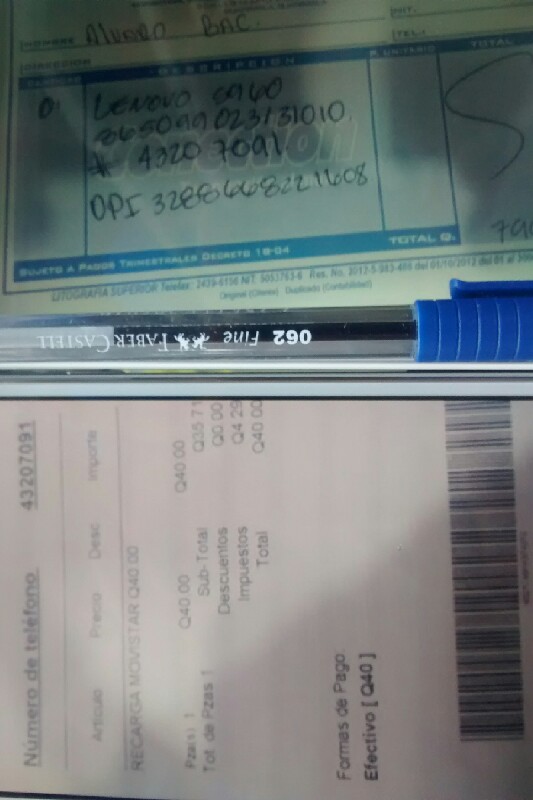 NOMBRE Alvaro BAC.
NIT:
DIRECCION
TEL.:
DESCRIPCION P. UNITARIO TOTAL
01 LENOVO S960
865099023131010
* 4320 7091
DPI 3288668221608
TOTAL Q. 790
SUJETO A PAGOS TRIMESTRALES DECRETO 18-04
LITOGRAFIA SUPERIOR Telefax: 2439-6156 NIT: 5053763-6 Res. No. 2012-5-983-485 del 01/10/2012 del 01 al
Original (Cliente) Duplicado (Contabilidad)
062 Fine FABER CASTELL
Número de teléfono 43207091
Artículo Precio Desc Importe
RECARGA MOVISTAR Q40.00
Pzas 1 Q40.00 Q40.00
Tot de Pzas 1 Sub-Total Q35.71
Descuentos Q0.00
Impuestos Q4.29
Total Q40.00
Formas de Pago:
Efectivo [ Q40 ]